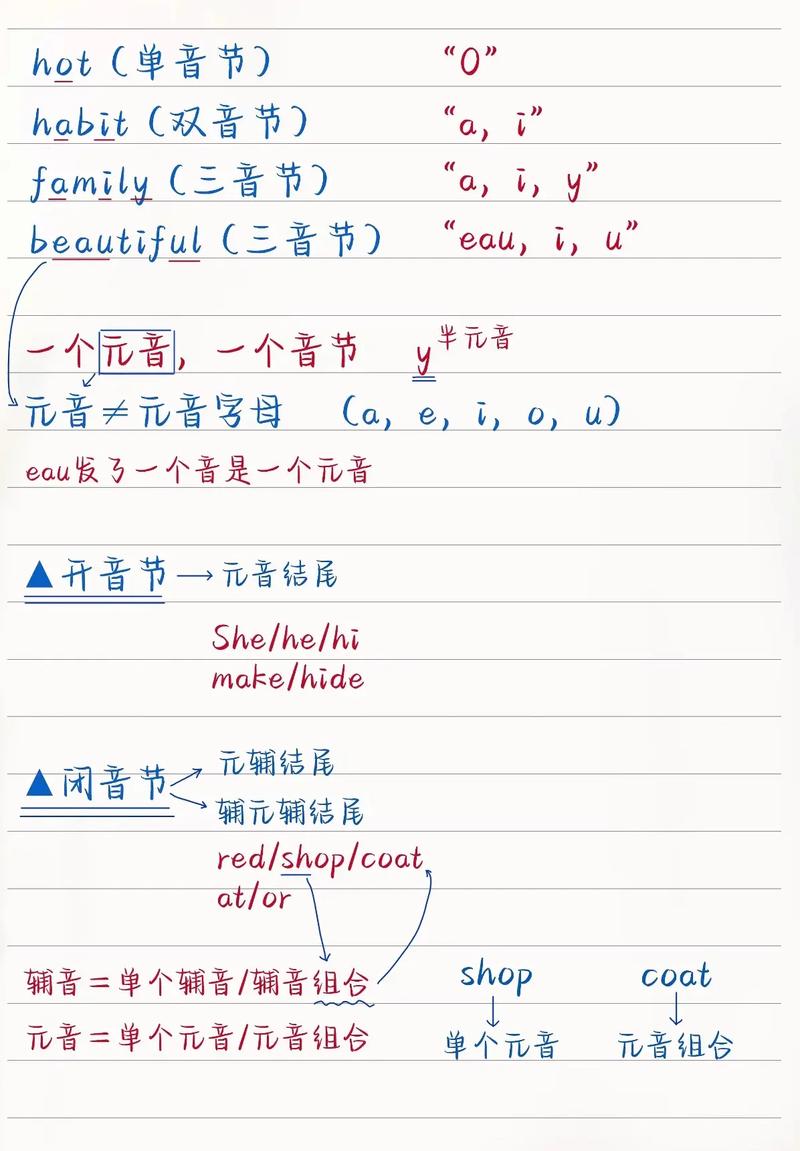 hot（单音节） “O”
habit（双音节） “a, i”
family（三音节） “a, i, y”
beautiful（三音节） “eau, i, u”
一个元音，一个音节 y半元音
元音≠元音字母 （a, e, i, o, u）
eau发了一个音是一个元音
▲开音节→元音结尾
She/he/hi
make/hide
▲闭音节
元辅结尾
辅元辅结尾
red/shop/coat
at/or
辅音=单个辅音/辅音组合
元音=单个元音/元音组合
shop coat
单个元音 元音组合